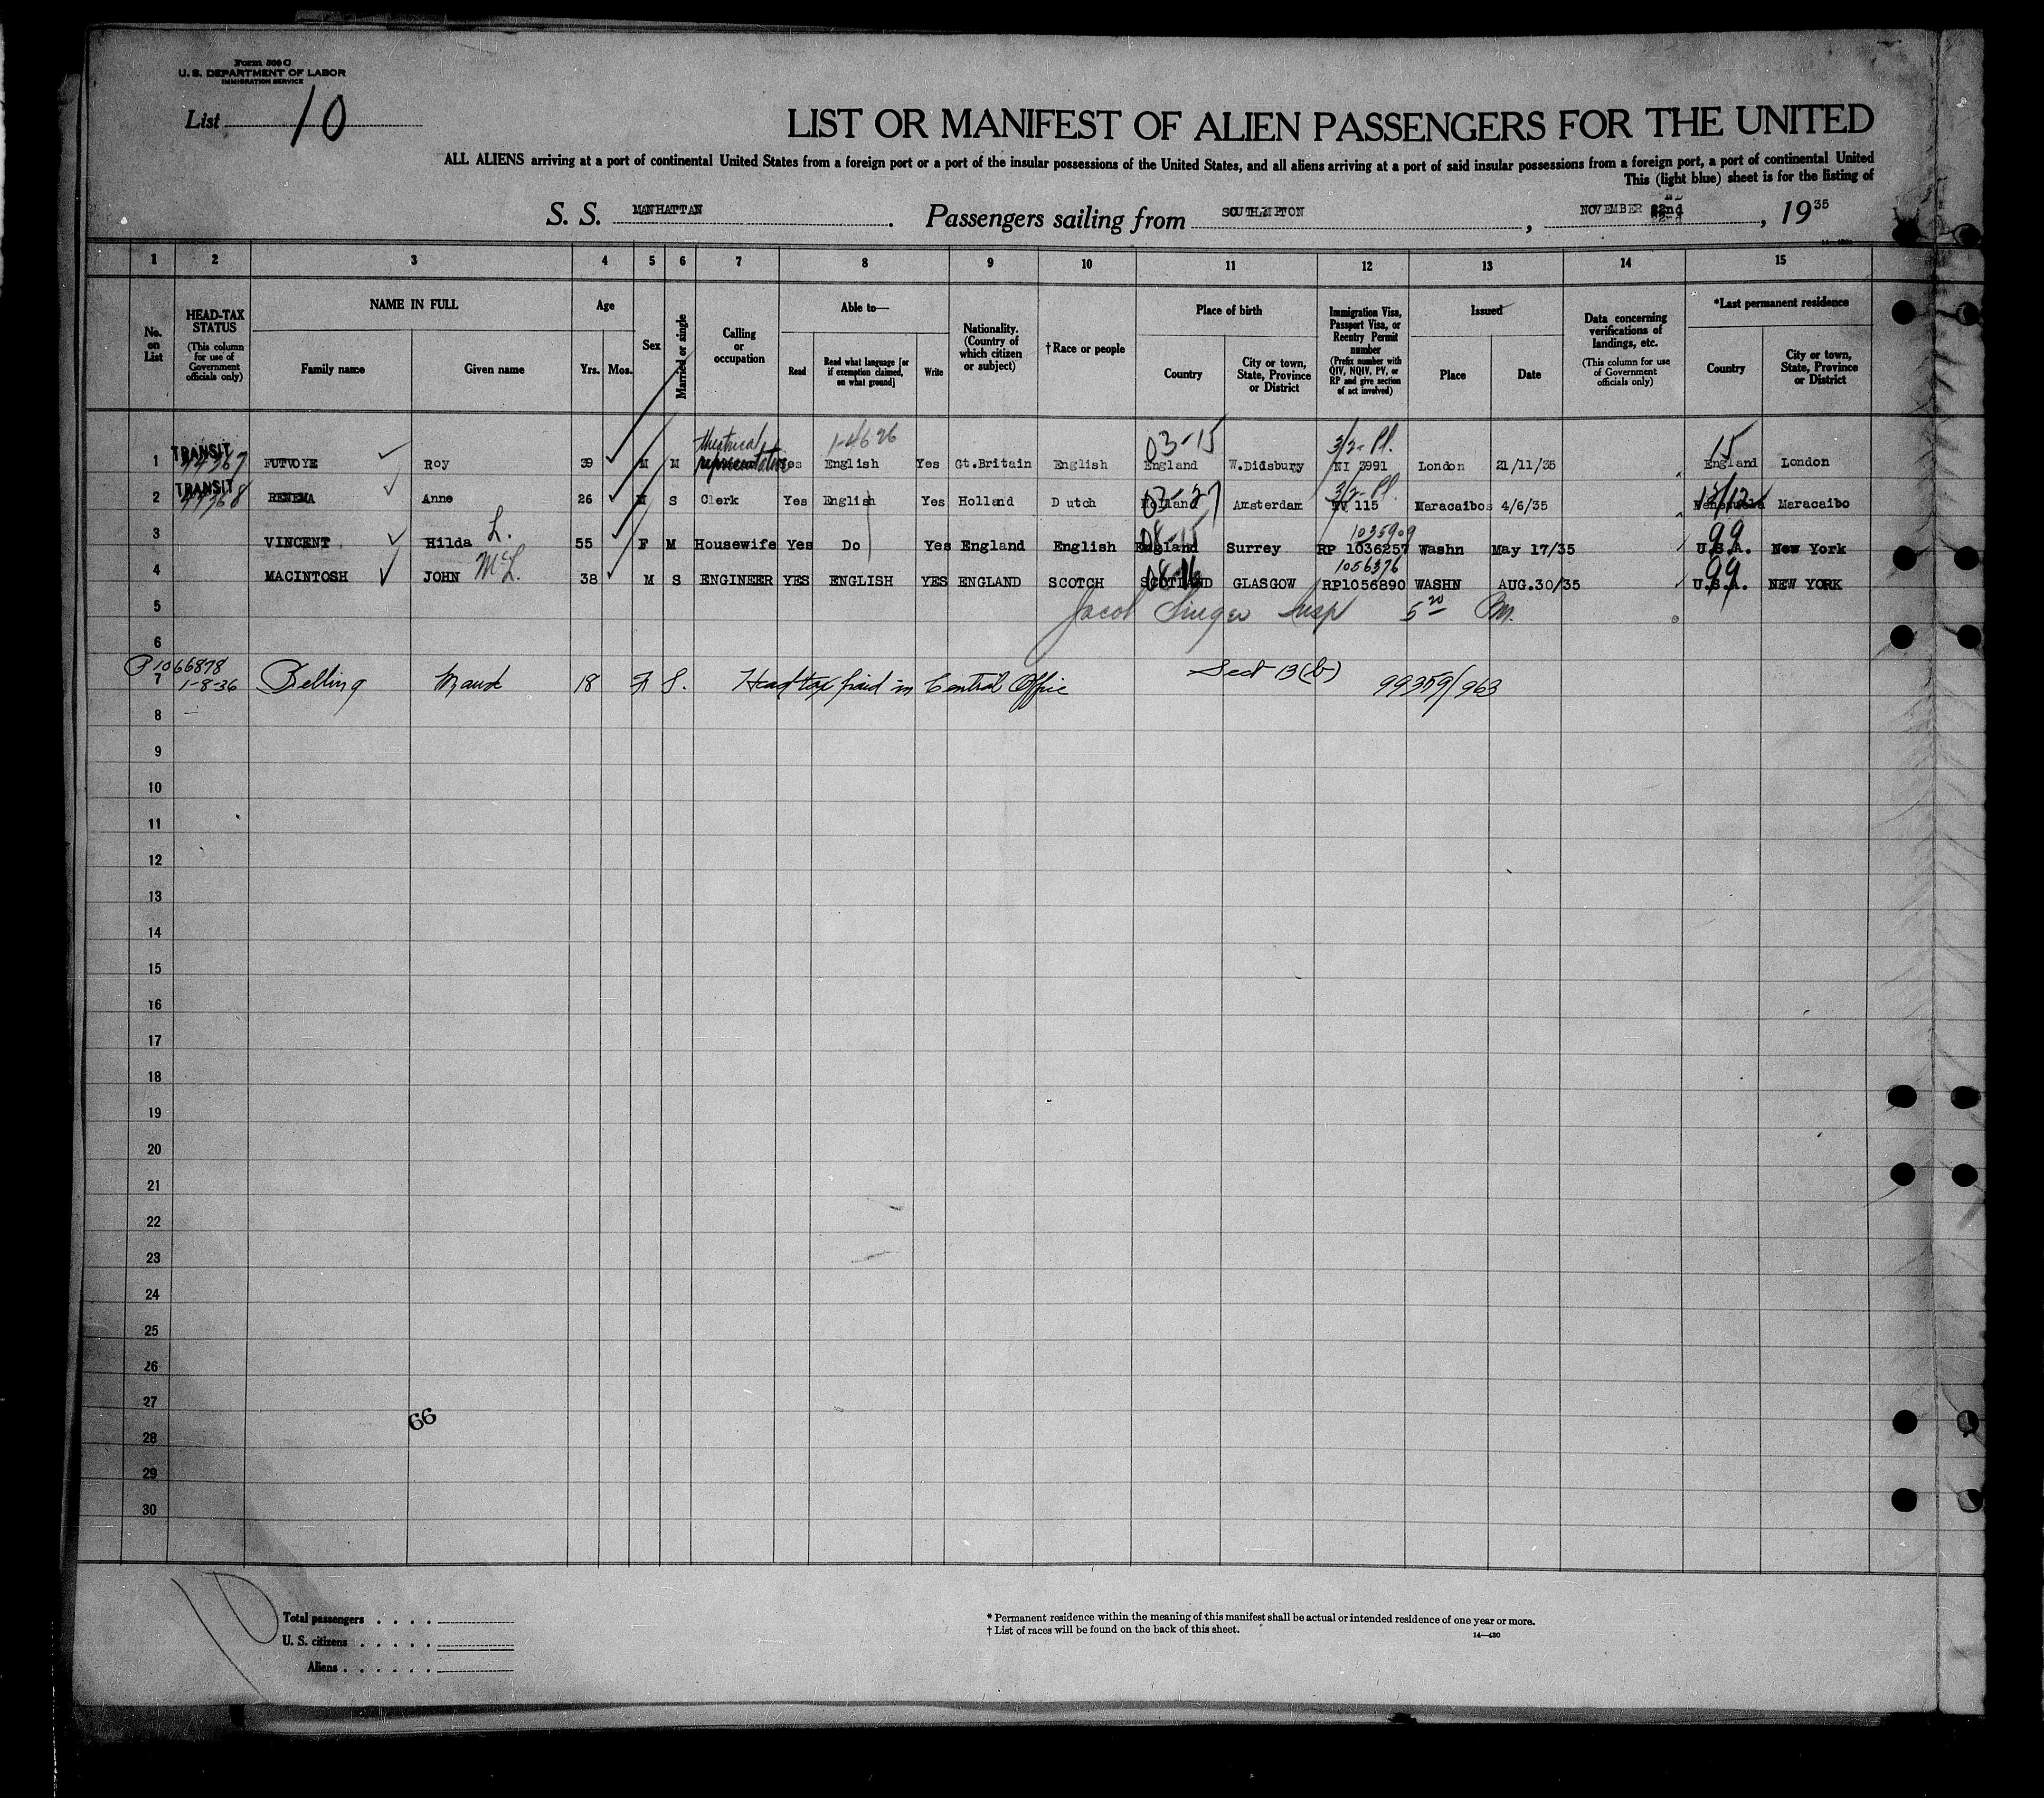 Form 500 C
U. S. DEPARTMENT OF LABOR
IMMIGRATION SERVICE
List 10
LIST OR MANIFEST OF ALIEN PASSENGERS FOR THE UNITED
ALL ALIENS arriving at a port of continental United States from a foreign port or a port of the insular possessions of the United States, and all aliens arriving at a port of said insular possessions from a foreign port, a port of continental United
This (light blue) sheet is for the listing of
S. S. MANHATTAN. Passengers sailing from SOUTHAMPTON, NOVEMBER 22nd, 1935
1 2 3 4 5 6 7 8 9 10 11 12 13 14 15
No. on List
HEAD-TAX STATUS
(This column for use of Government officials only)
NAME IN FULL
Family name
Given name
Age
Yrs. Mos.
Sex
Married or single
Calling or occupation
Able to—
Read
Read what language [or if exemption claimed, on what ground]
Write
Nationality. (Country of which citizen or subject)
†Race or people
Place of birth
Country
City or town, State, Province or District
Immigration Visa, Passport Visa, or Reentry Permit number
(Prefix number with QIV, NQIV, PV, or RP and give section of act involved)
Issued
Place
Date
Data concerning verifications of landings, etc.
(This column for use of Government officials only)
*Last permanent residence
Country
City or town, State, Province or District
Theatrical 1-4626 03-15 3/2-Pl. 15
1 TRANSIT 44367 FUTVOYE Roy 39 M M representative Yes English Yes Gt.Britain English England W.Didsbury NI 3991 London 21/11/35 England London
03-27 3/2-Pl.
2 TRANSIT 44368 RENEMA Anne 26 M S Clerk Yes English Yes Holland Dutch Holland Amsterdam 115 Maracaibos 4/6/35 Venezuela Maracaibo
08-15 1035909 99
3 VINCENT Hilda L. 55 F M Housewife Yes Do Yes England English England Surrey RP 1036257 Washn May 17/35 U.S.A. New York
08-16 1056376 99
4 MACINTOSH JOHN McL. 38 M S ENGINEER YES ENGLISH YES ENGLAND SCOTCH SCOTLAND GLASGOW RP1056890 WASHN AUG.30/35 U.S.A. NEW YORK
5 Jacob Singer Insp 5 20 PM.
6
P 1066878
7 1-8-36 Belling Maud 18 F S. Head tax paid in Central Office Sect 13(b) 99359/963
8
9
10
11
12
13
14
15
16
17
18
19
20
21
22
23
24
25
26
27
66
28
29
30
10
Total passengers . . . .
U. S. citizens . . . . .
Aliens . . . . . .
* Permanent residence within the meaning of this manifest shall be actual or intended residence of one year or more.
† List of races will be found on the back of this sheet.
14—430